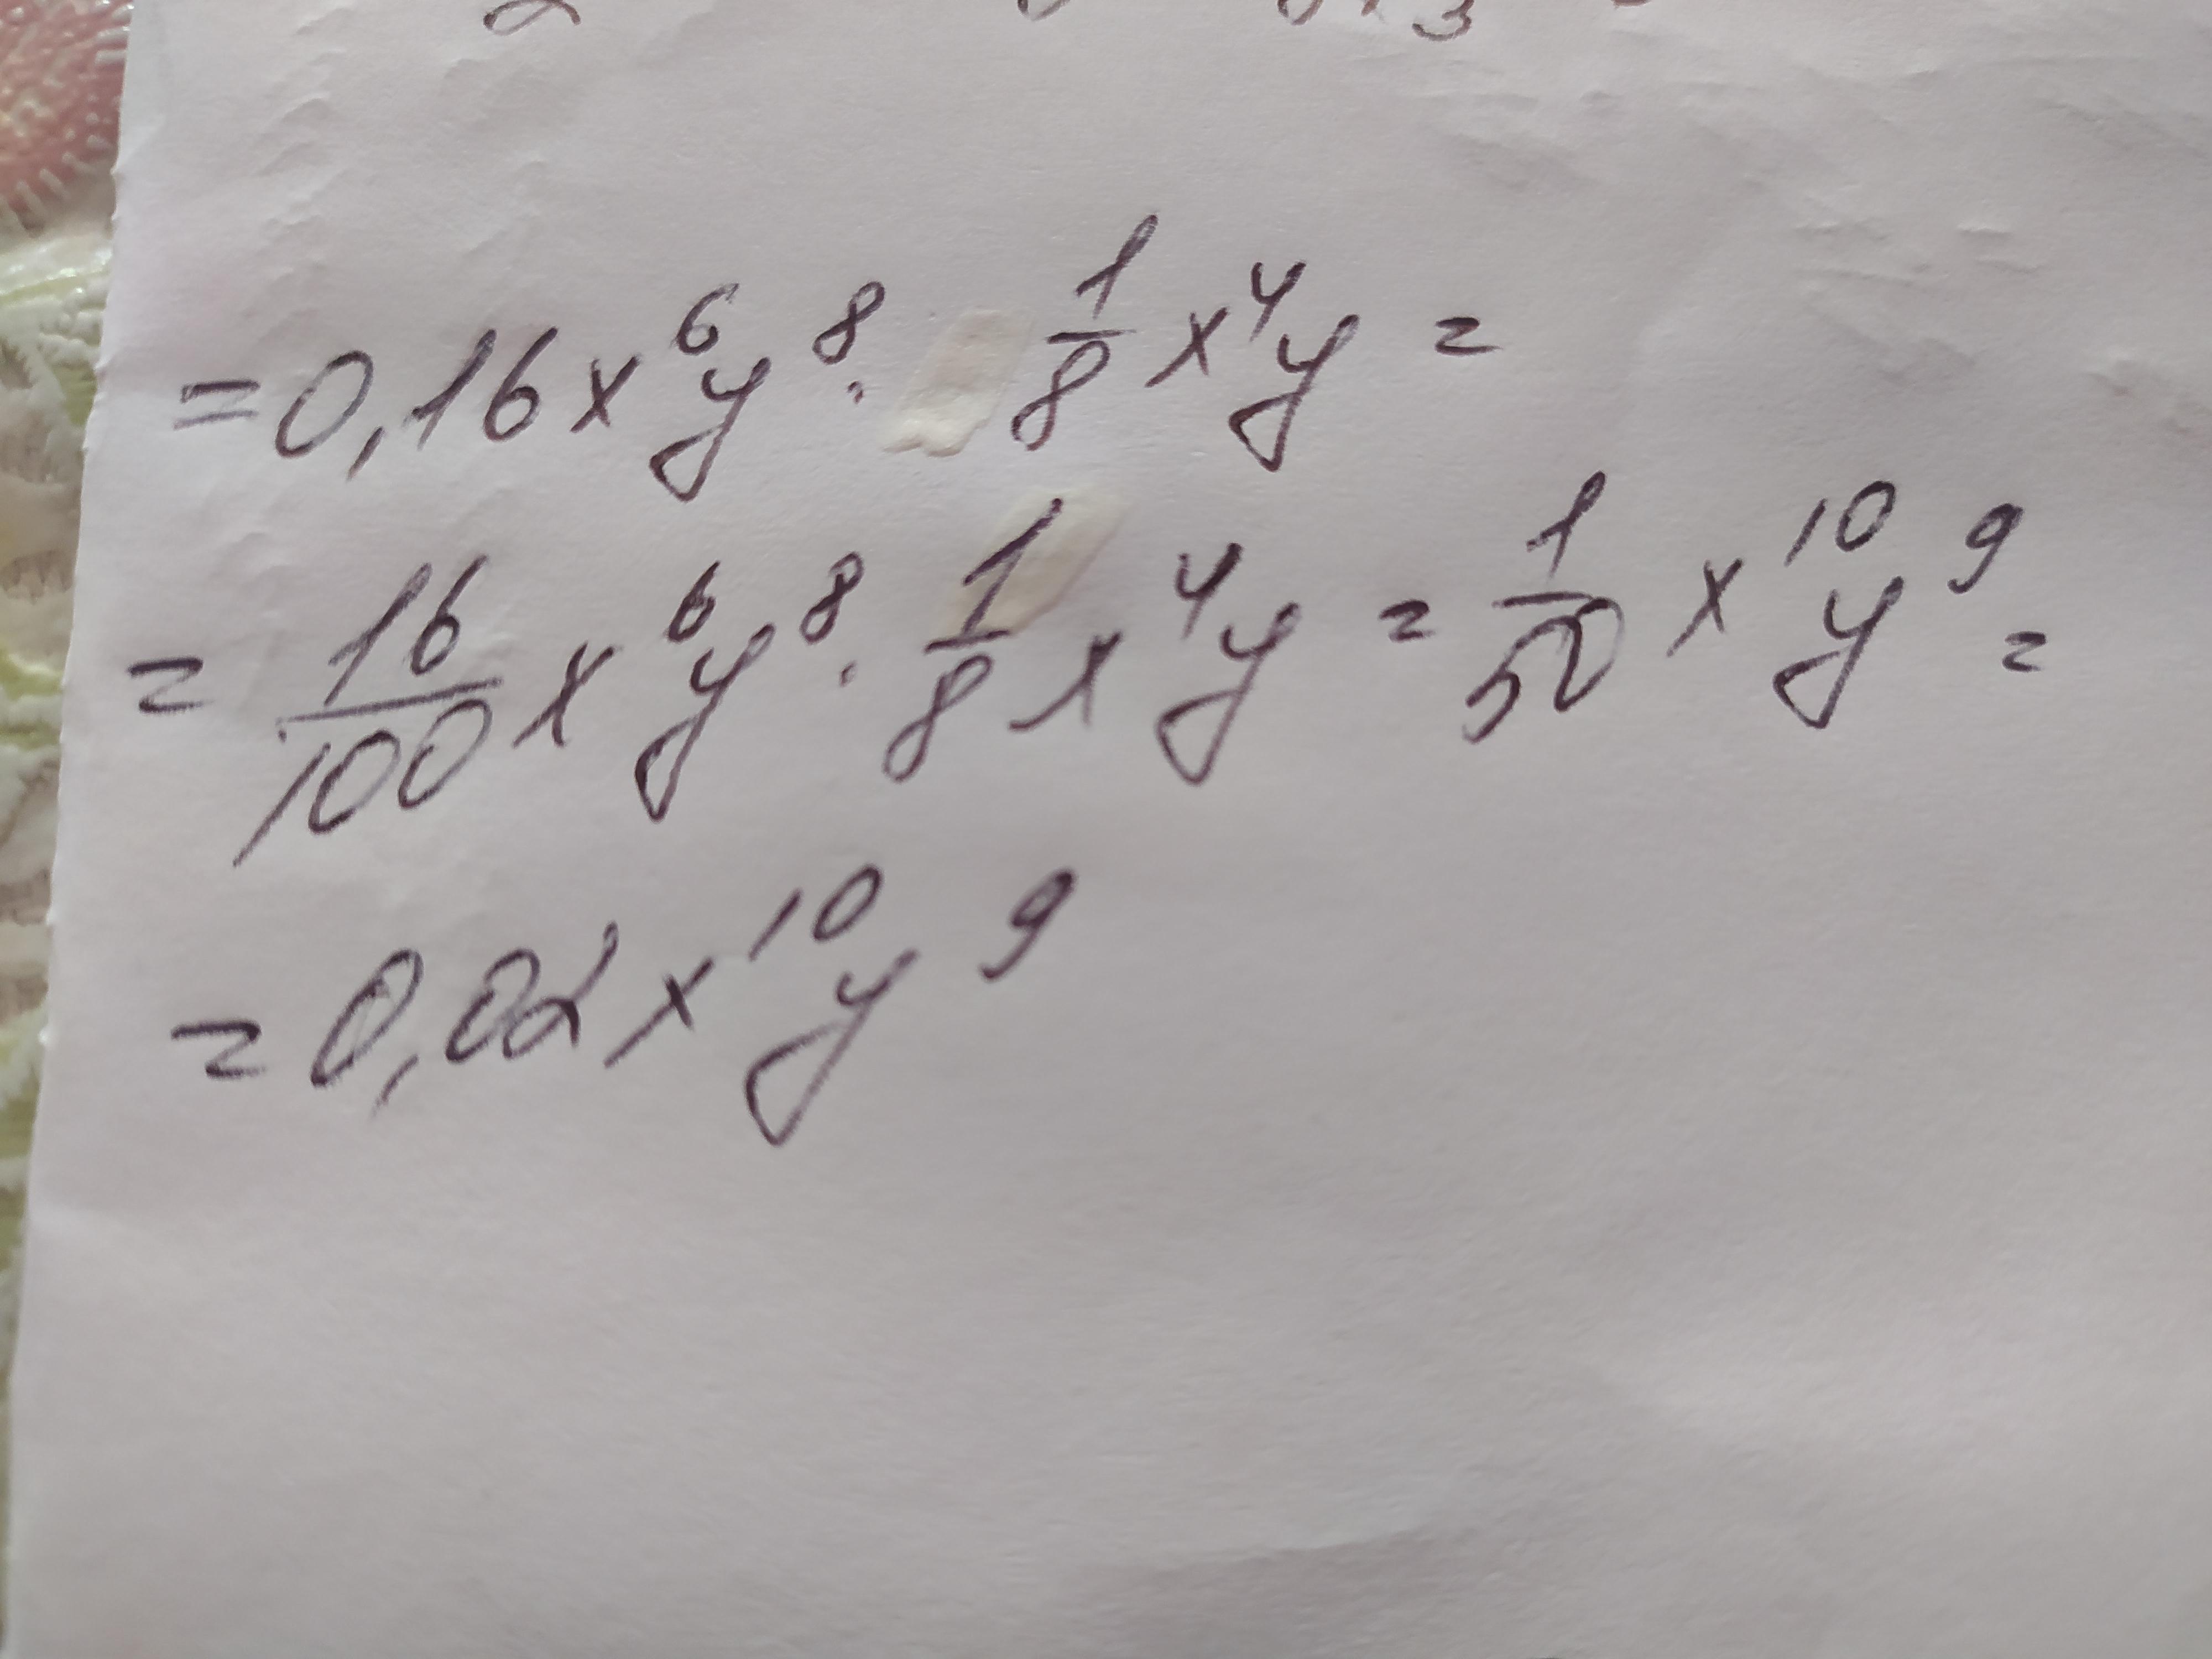 = 0,16x⁶y⁸ · 1/8 x⁴y =
= 16/100 x⁶y⁸ · 1/8 x⁴y = 1/50 x¹⁰y⁹ =
= 0,02x¹⁰y⁹